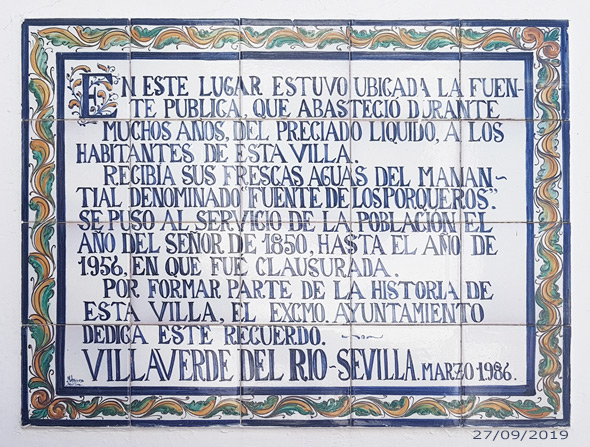 EN ESTE LUGAR ESTUVO UBICADA LA FUEN-
TE PUBLICA, QUE ABASTECIÓ DURANTE
MUCHOS AÑOS, DEL PRECIADO LIQUIDO, A LOS
HABITANTES DE ESTA VILLA.
RECIBIA SUS FRESCAS AGUAS DEL MANAN-
TIAL DENOMINADO "FUENTE DE LOS PORQUEROS".
SE PUSO AL SERVICIO DE LA POBLACIÓN EL
AÑO DEL SEÑOR DE 1850, HASTA EL AÑO DE
1956, EN QUE FUE CLAUSURADA.
POR FORMAR PARTE DE LA HISTORIA DE
ESTA VILLA, EL EXCMO. AYUNTAMIENTO
DEDICA ESTE RECUERDO.
VILLAVERDE DEL RIO-SEVILLA. MARZO 1986.
27/09/2019